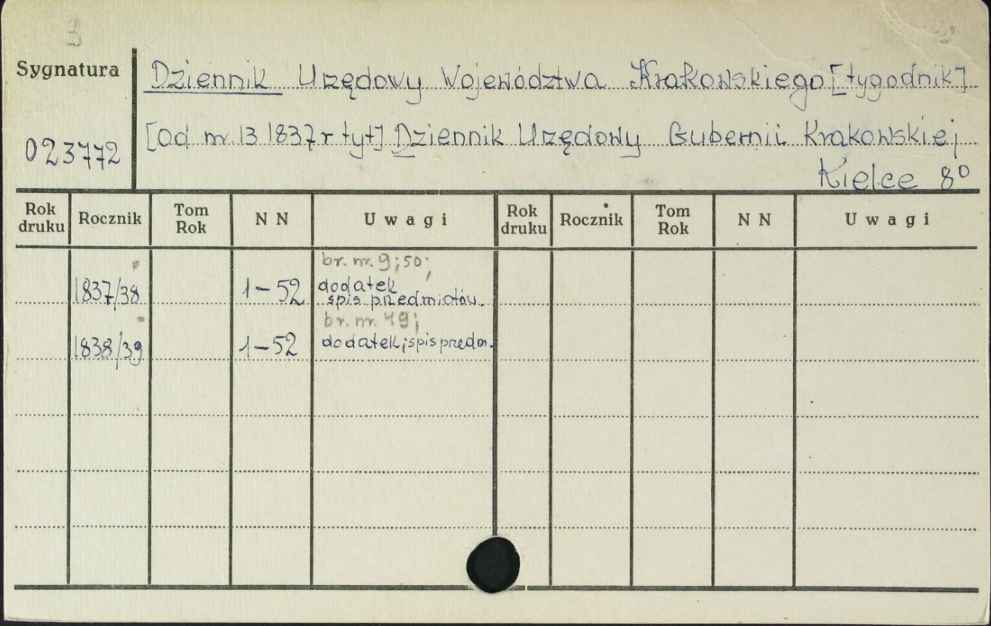 Sygnatura
Dziennik Urzędowy Województwa Krakowskiego [tygodnik]
023772
[Od nr. 13 1837 r tyt] Dziennik Urzędowy Gubernii Krakowskiej
Kielce 8⁰
Rok druku Rocznik Tom Rok NN Uwagi Rok druku Rocznik Tom Rok NN Uwagi
br. nr. 9; 50;
1837/38 1–52 dodatek
spis przedmiotów.
br. nr. 49;
1838/39 1–52 dodatek; spis przedm.